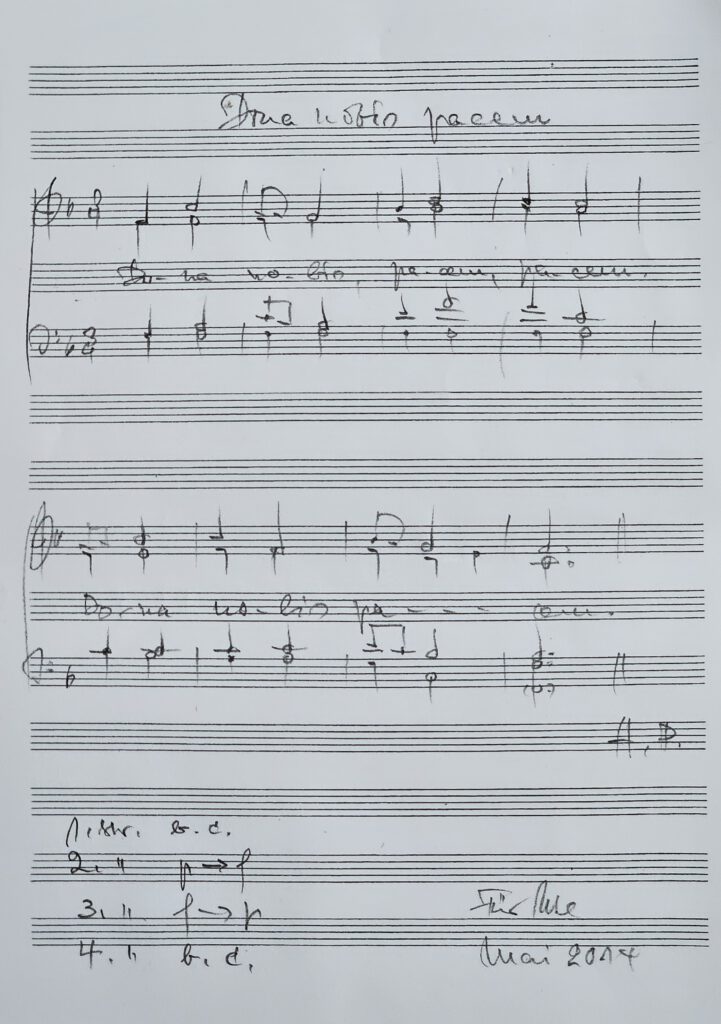 Dona nobis pacem
Do-na no-bis, pa-cem, pa-cem.
Do-na no-bis pa - - - cem.
H. D.
1. Str. b. c.
2. " p → f
3. " f → p
4. " b. c.
Für
Mai 2014